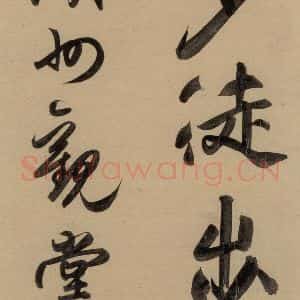 徒出
州觀堂
Shufawang.CN